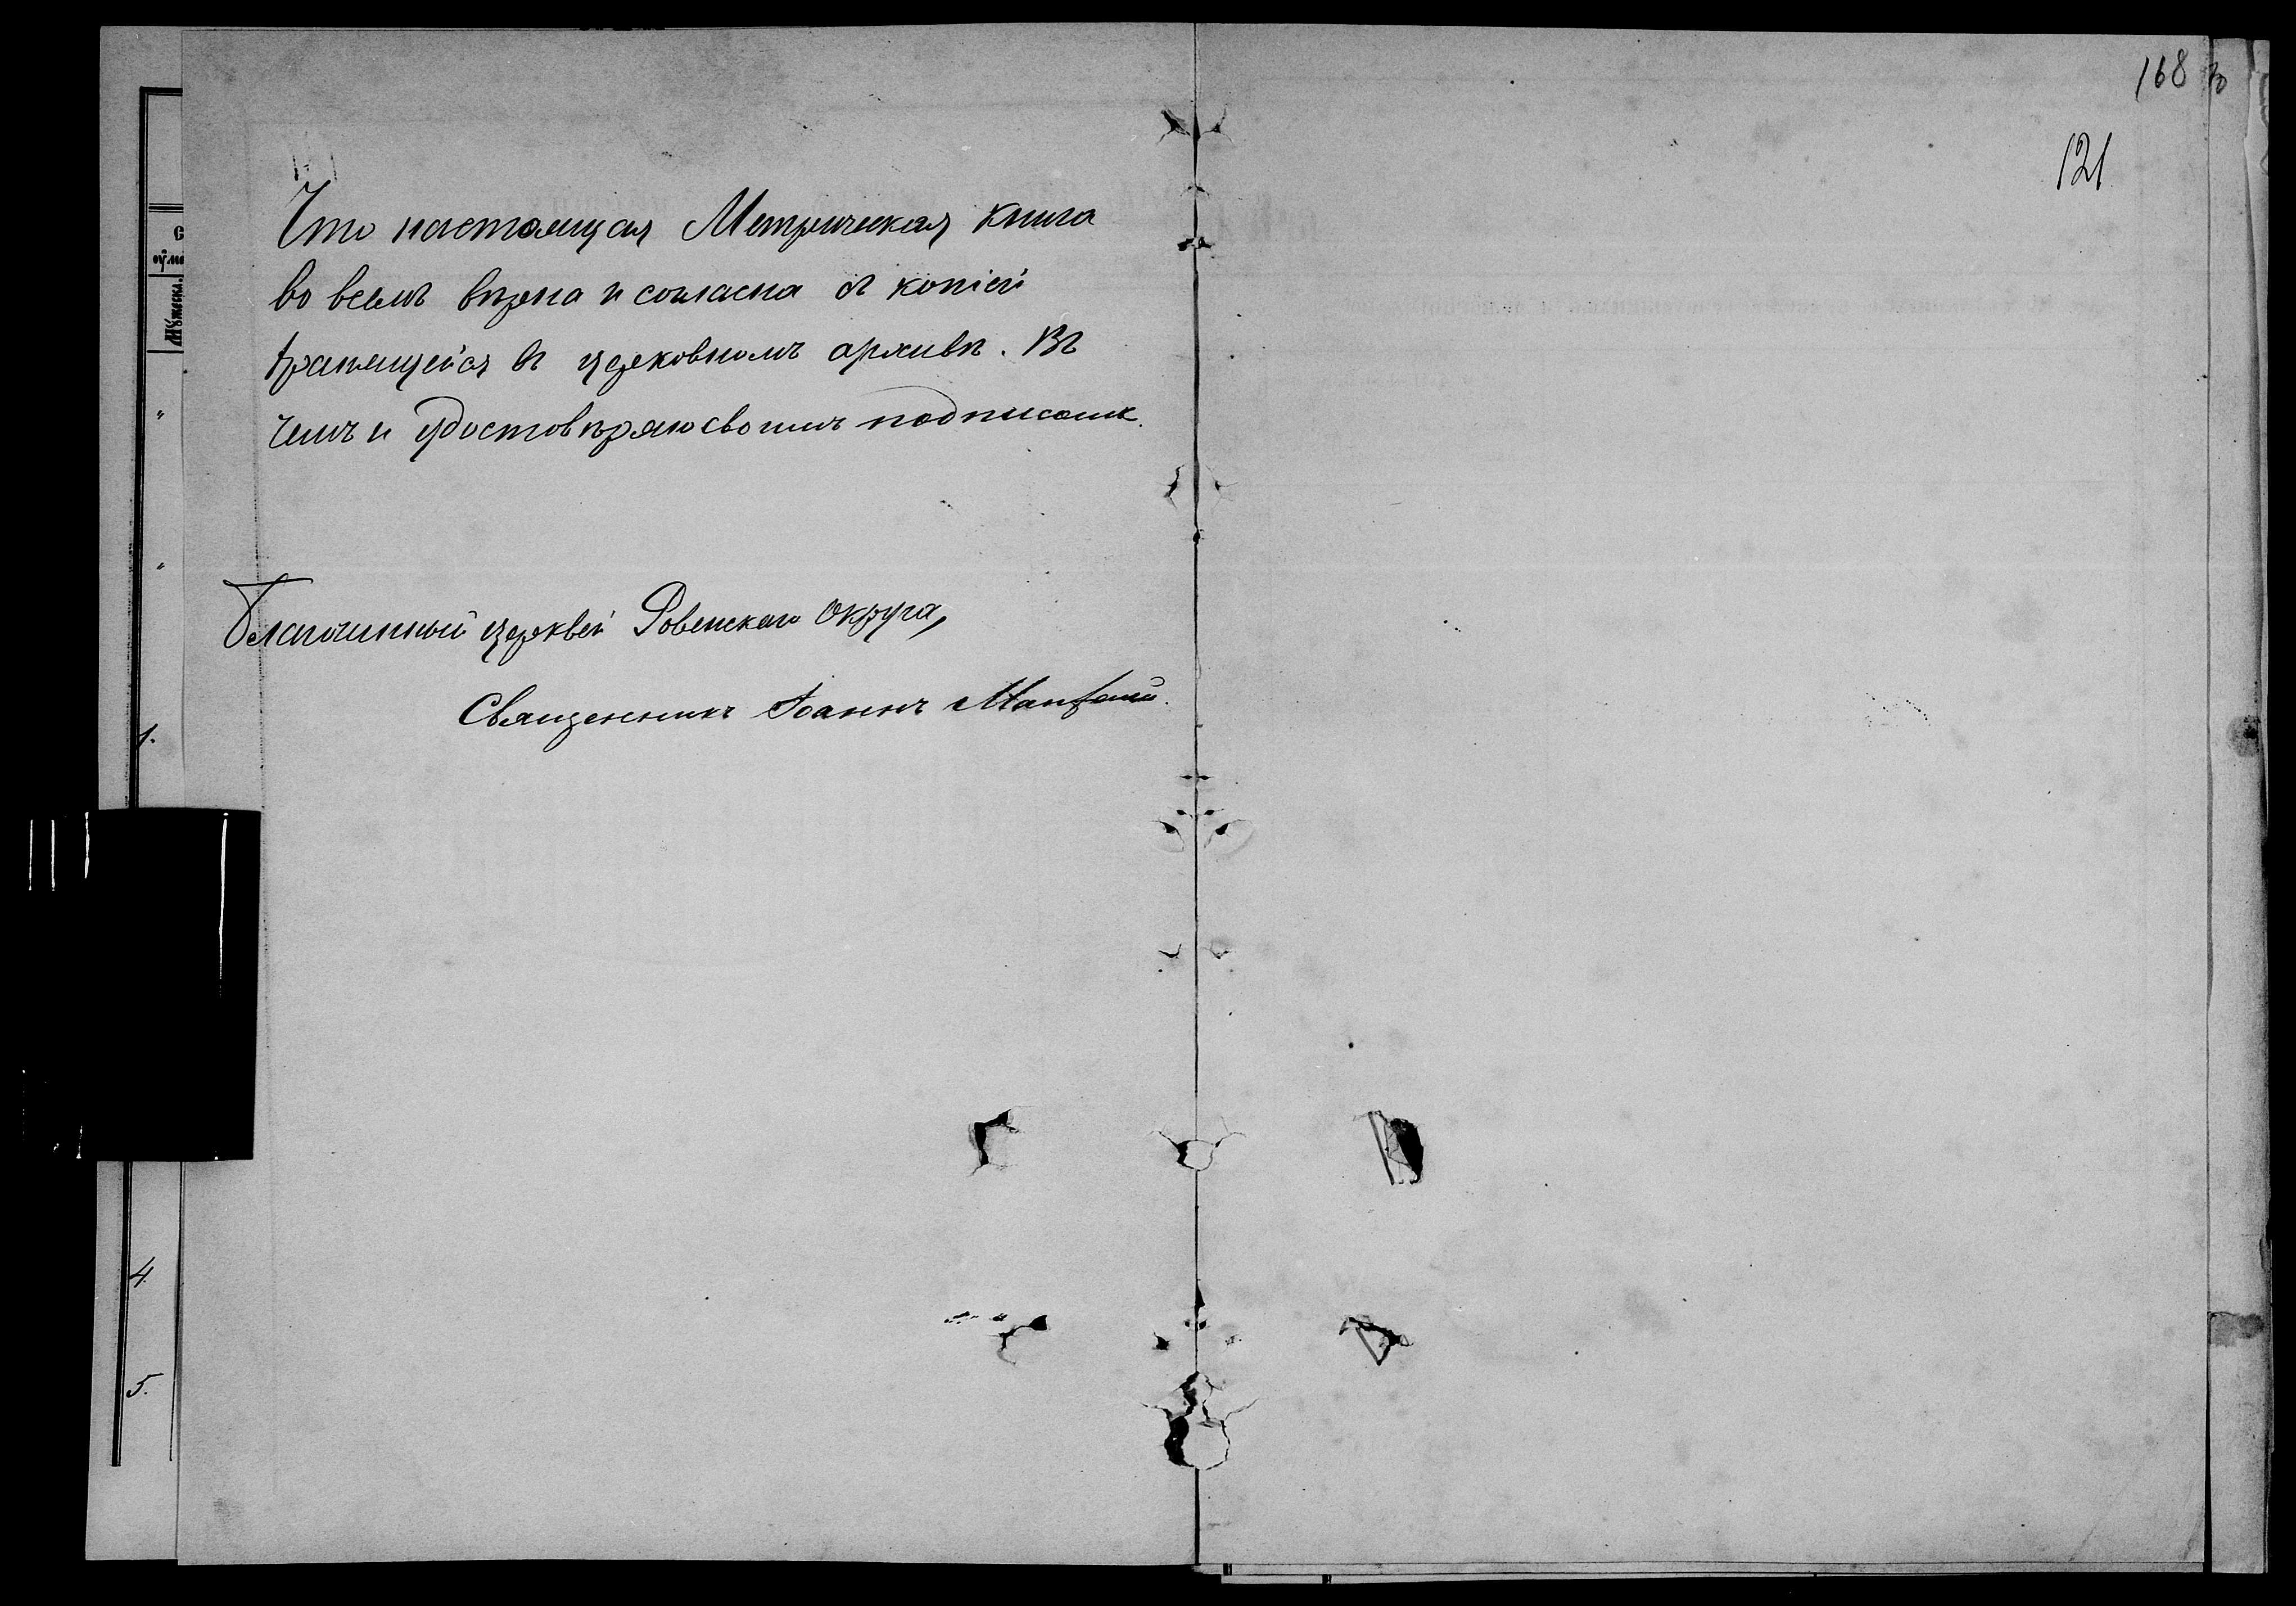 168
121
Что настоящая Метрическая книга
во всемъ вѣрна и согласна съ копіей
хранящейся въ церковномъ архивѣ. Въ
чемъ и удостовѣряю своимъ подписомъ.
Благочинный церквей Ровенскаго Округа,
Священникъ Іоаннъ
1.
4
5.